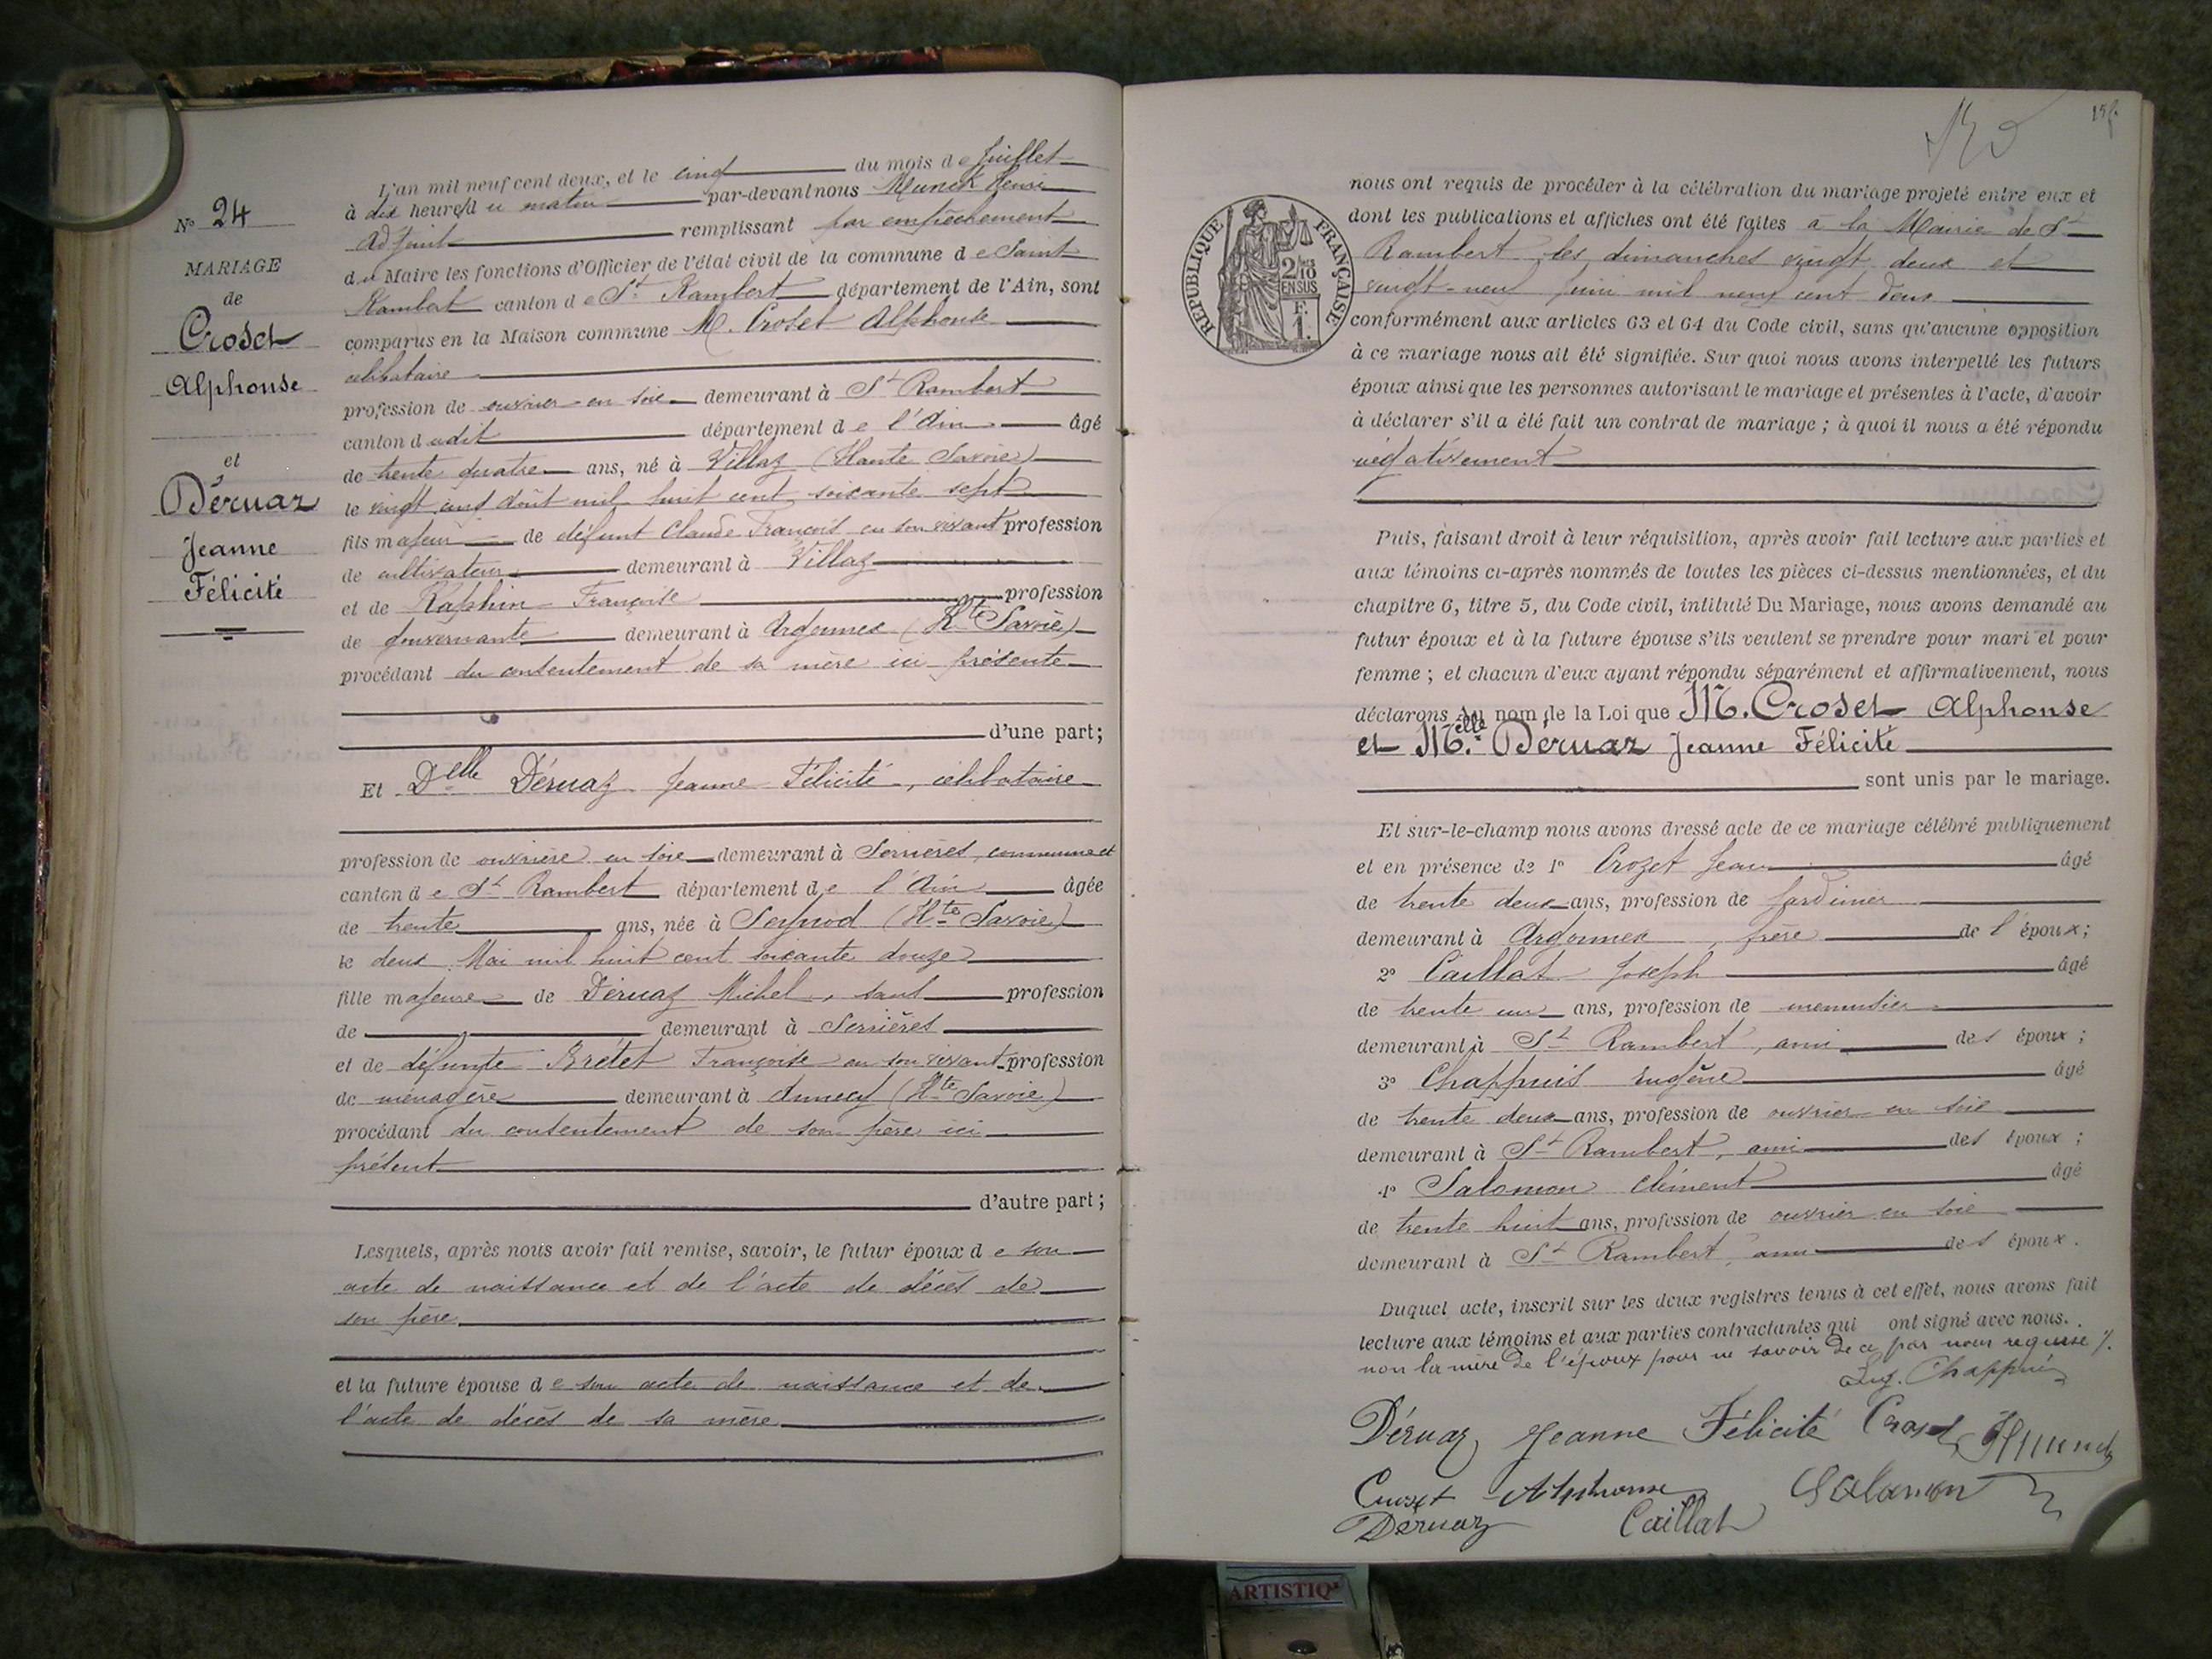 L'an mil neuf cent deux, et le cinq du mois de Juillet
à dix heures du matin par-devant nous Munck Henri
Adjoint remplissant par empêchement
du Maire les fonctions d'Officier de l'état civil de la commune de Saint
Rambert canton de St Rambert département de l'Ain, sont
comparus en la Maison commune M. Croset Alphonse
célibataire
profession de ouvrier en soie demeurant à St Rambert
canton dudit département de l'Ain âgé
de trente quatre ans, né à Villaz (Haute Savoie)
le vingt août mil huit cent soixante sept
fils majeur de défunt Claude François en son vivant profession
de cultivateur demeurant à Villaz
et de Raphin Françoise profession
de gouvernante demeurant à Argonnex (Hte Savoie)
procédant du consentement de sa mère ici présente
d'une part;
Et Delle Déruaz Jeanne Félicité, célibataire
profession de ouvrière en soie demeurant à Serrières, commune et
canton de St Rambert département de l'Ain âgée
de trente ans, née à Seynod (Hte Savoie)
le deux Mai mil huit cent soixante douze
fille majeure de Déruaz Michel, sans profession
de demeurant à Serrières
et de défunte Brétet Françoise en son vivant profession
de ménagère demeurant à Annecy (Hte Savoie)
procédant du consentement de son père ici
présent
d'autre part;
Lesquels, après nous avoir fait remise, savoir, le futur époux de son
acte de naissance et de l'acte de décès de
son père
et la future épouse de son acte de naissance et de
l'acte de décès de sa mère
No 24
MARIAGE
de
Croset
Alphonse
et
Déruaz
Jeanne
Félicité
REPUBLIQUE FRANÇAISE
2/10
EN SUS
F.
1.
nous ont requis de procéder à la célébration du mariage projeté entre eux et
dont les publications et affiches ont été faites à la Mairie de St
Rambert les dimanches vingt deux et
vingt-neuf juin mil neuf cent deux
conformément aux articles 63 et 64 du Code civil, sans qu'aucune opposition
à ce mariage nous ait été signifiée. Sur quoi nous avons interpellé les futurs
époux ainsi que les personnes autorisant le mariage et présentes à l'acte, d'avoir
à déclarer s'il a été fait un contrat de mariage ; à quoi il nous a été répondu
négativement
Puis, faisant droit à leur réquisition, après avoir fait lecture aux parties et
aux témoins ci-après nommés de toutes les pièces ci-dessus mentionnées, et du
chapitre 6, titre 5, du Code civil, intitulé Du Mariage, nous avons demandé au
futur époux et à la future épouse s'ils veulent se prendre pour mari et pour
femme ; et chacun d'eux ayant répondu séparément et affirmativement, nous
déclarons au nom de la Loi que M. Croset Alphonse
et Melle Déruaz Jeanne Félicité
sont unis par le mariage.
Et sur-le-champ nous avons dressé acte de ce mariage célébré publiquement
et en présence de 1o Crozet Jean âgé
de trente deux ans, profession de jardinier
demeurant à Argonnex, frère de l'époux;
2o Caillat Joseph âgé
de trente un ans, profession de menuisier
demeurant à St Rambert, ami des époux ;
3o Chappuis Eugène âgé
de trente deux ans, profession de ouvrier en soie
demeurant à St Rambert, ami des époux ;
4o Salomon Clément âgé
de trente huit ans, profession de ouvrier en soie
demeurant à St Rambert, ami des époux.
Duquel acte, inscrit sur les deux registres tenus à cet effet, nous avons fait
lecture aux témoins et aux parties contractantes qui ont signé avec nous.
non la mère de l'époux pour ne savoir de ce par nous requise
Eug. Chappuis
Déruaz Jeanne Félicité Croset HMunck
Croset Alphonse Salomon
Déruaz Caillat
ARTISTIQ